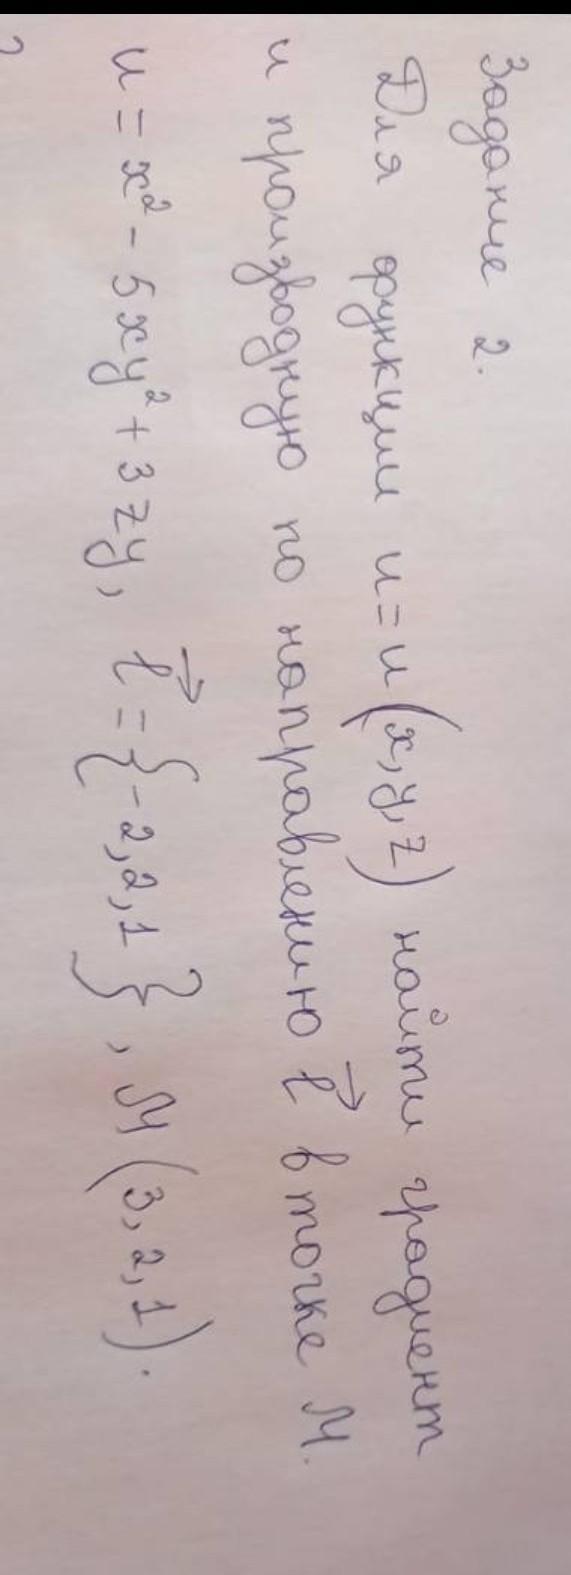 Задание 2.
Для функции u = u(x, y, z) найти градиент
и производную по направлению l⃗ в точке M.
u = x² - 5xy² + 3zy, l⃗ = {-2, 2, 1}, M(3, 2, 1).